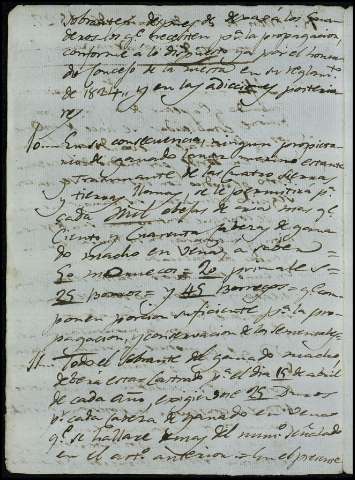 sobrantes despues de dexar á los Gana
deros los qe. necesiten pa. la propagacion,
conforme á lo dispuesto ya por el honra
do Concejo de la mesta en su reglamto.
de 1824,, y en las adiciones posterio
res.
10.... En su consecuencia, ningun propieta
rio de ganado lanar merino estante
y trasumante de las cuatro Sierras
y tierras llanas, se le permitirá pr.
cada Mil obejas de mas qe.
Ciento y Cuarenta cabezas de gana
do macho en Vena, á saber =
50 moruecos = 20 primales =
25 borros = y 45 borregos = qe com
ponen porcion suficiente pa. la pro
pagacion, y conservacion de los sementales
11.. Todo el sobrante del ganado macho,
deberá estar castrado pa. el dia 15 de abril
de cada año, exigiendose 25 Ducs
pr. cada cabeza de ganado en Vena
qe. se hallare demas del numo. señalado
en el arto. anterior = En el presente